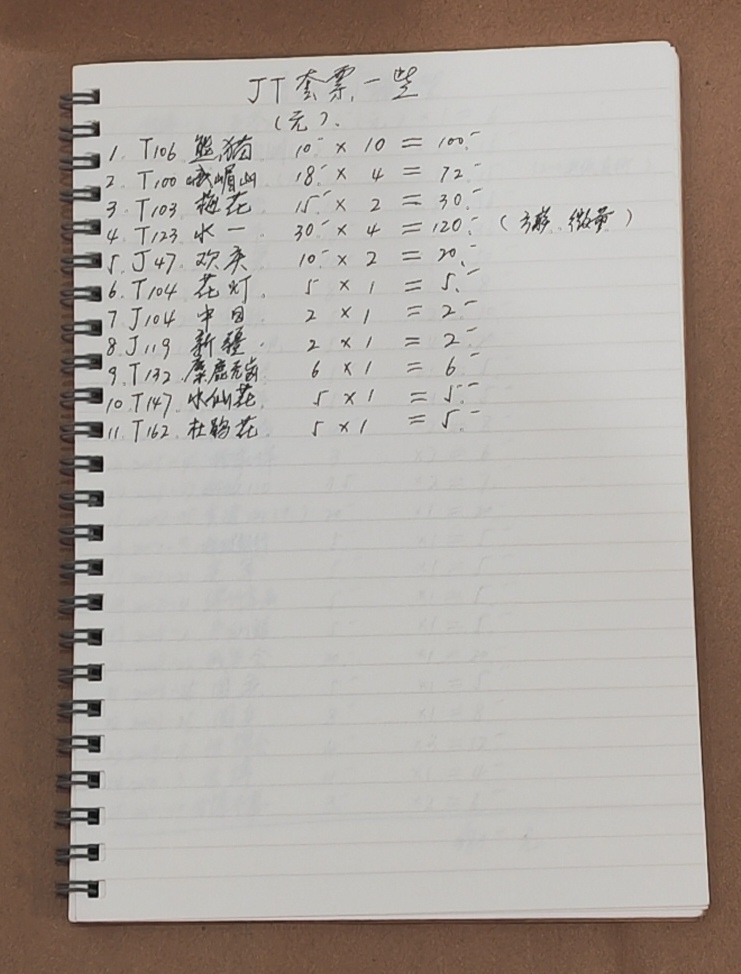 JT套票一些
(元).
1. T106 熊猫 10.- × 10 = 100.-
2. T100 峨嵋山 18.- × 4 = 72.-
3. T103 梅花 15.- × 2 = 30.-
4. T123 水一 30.- × 4 = 120.- ( 微黄 )
5. J47. 欢庆 10.- × 2 = 20.-
6. T104 花灯. 5 × 1 = 5.-
7. J104 中日 2 × 1 = 2.-
8. J119 新疆. 2 × 1 = 2.-
9. T132 麋鹿无齿 6 × 1 = 6.-
10. T147 水仙花 5 × 1 = 5.-
11. T162 杜鹃花 5 × 1 = 5.-